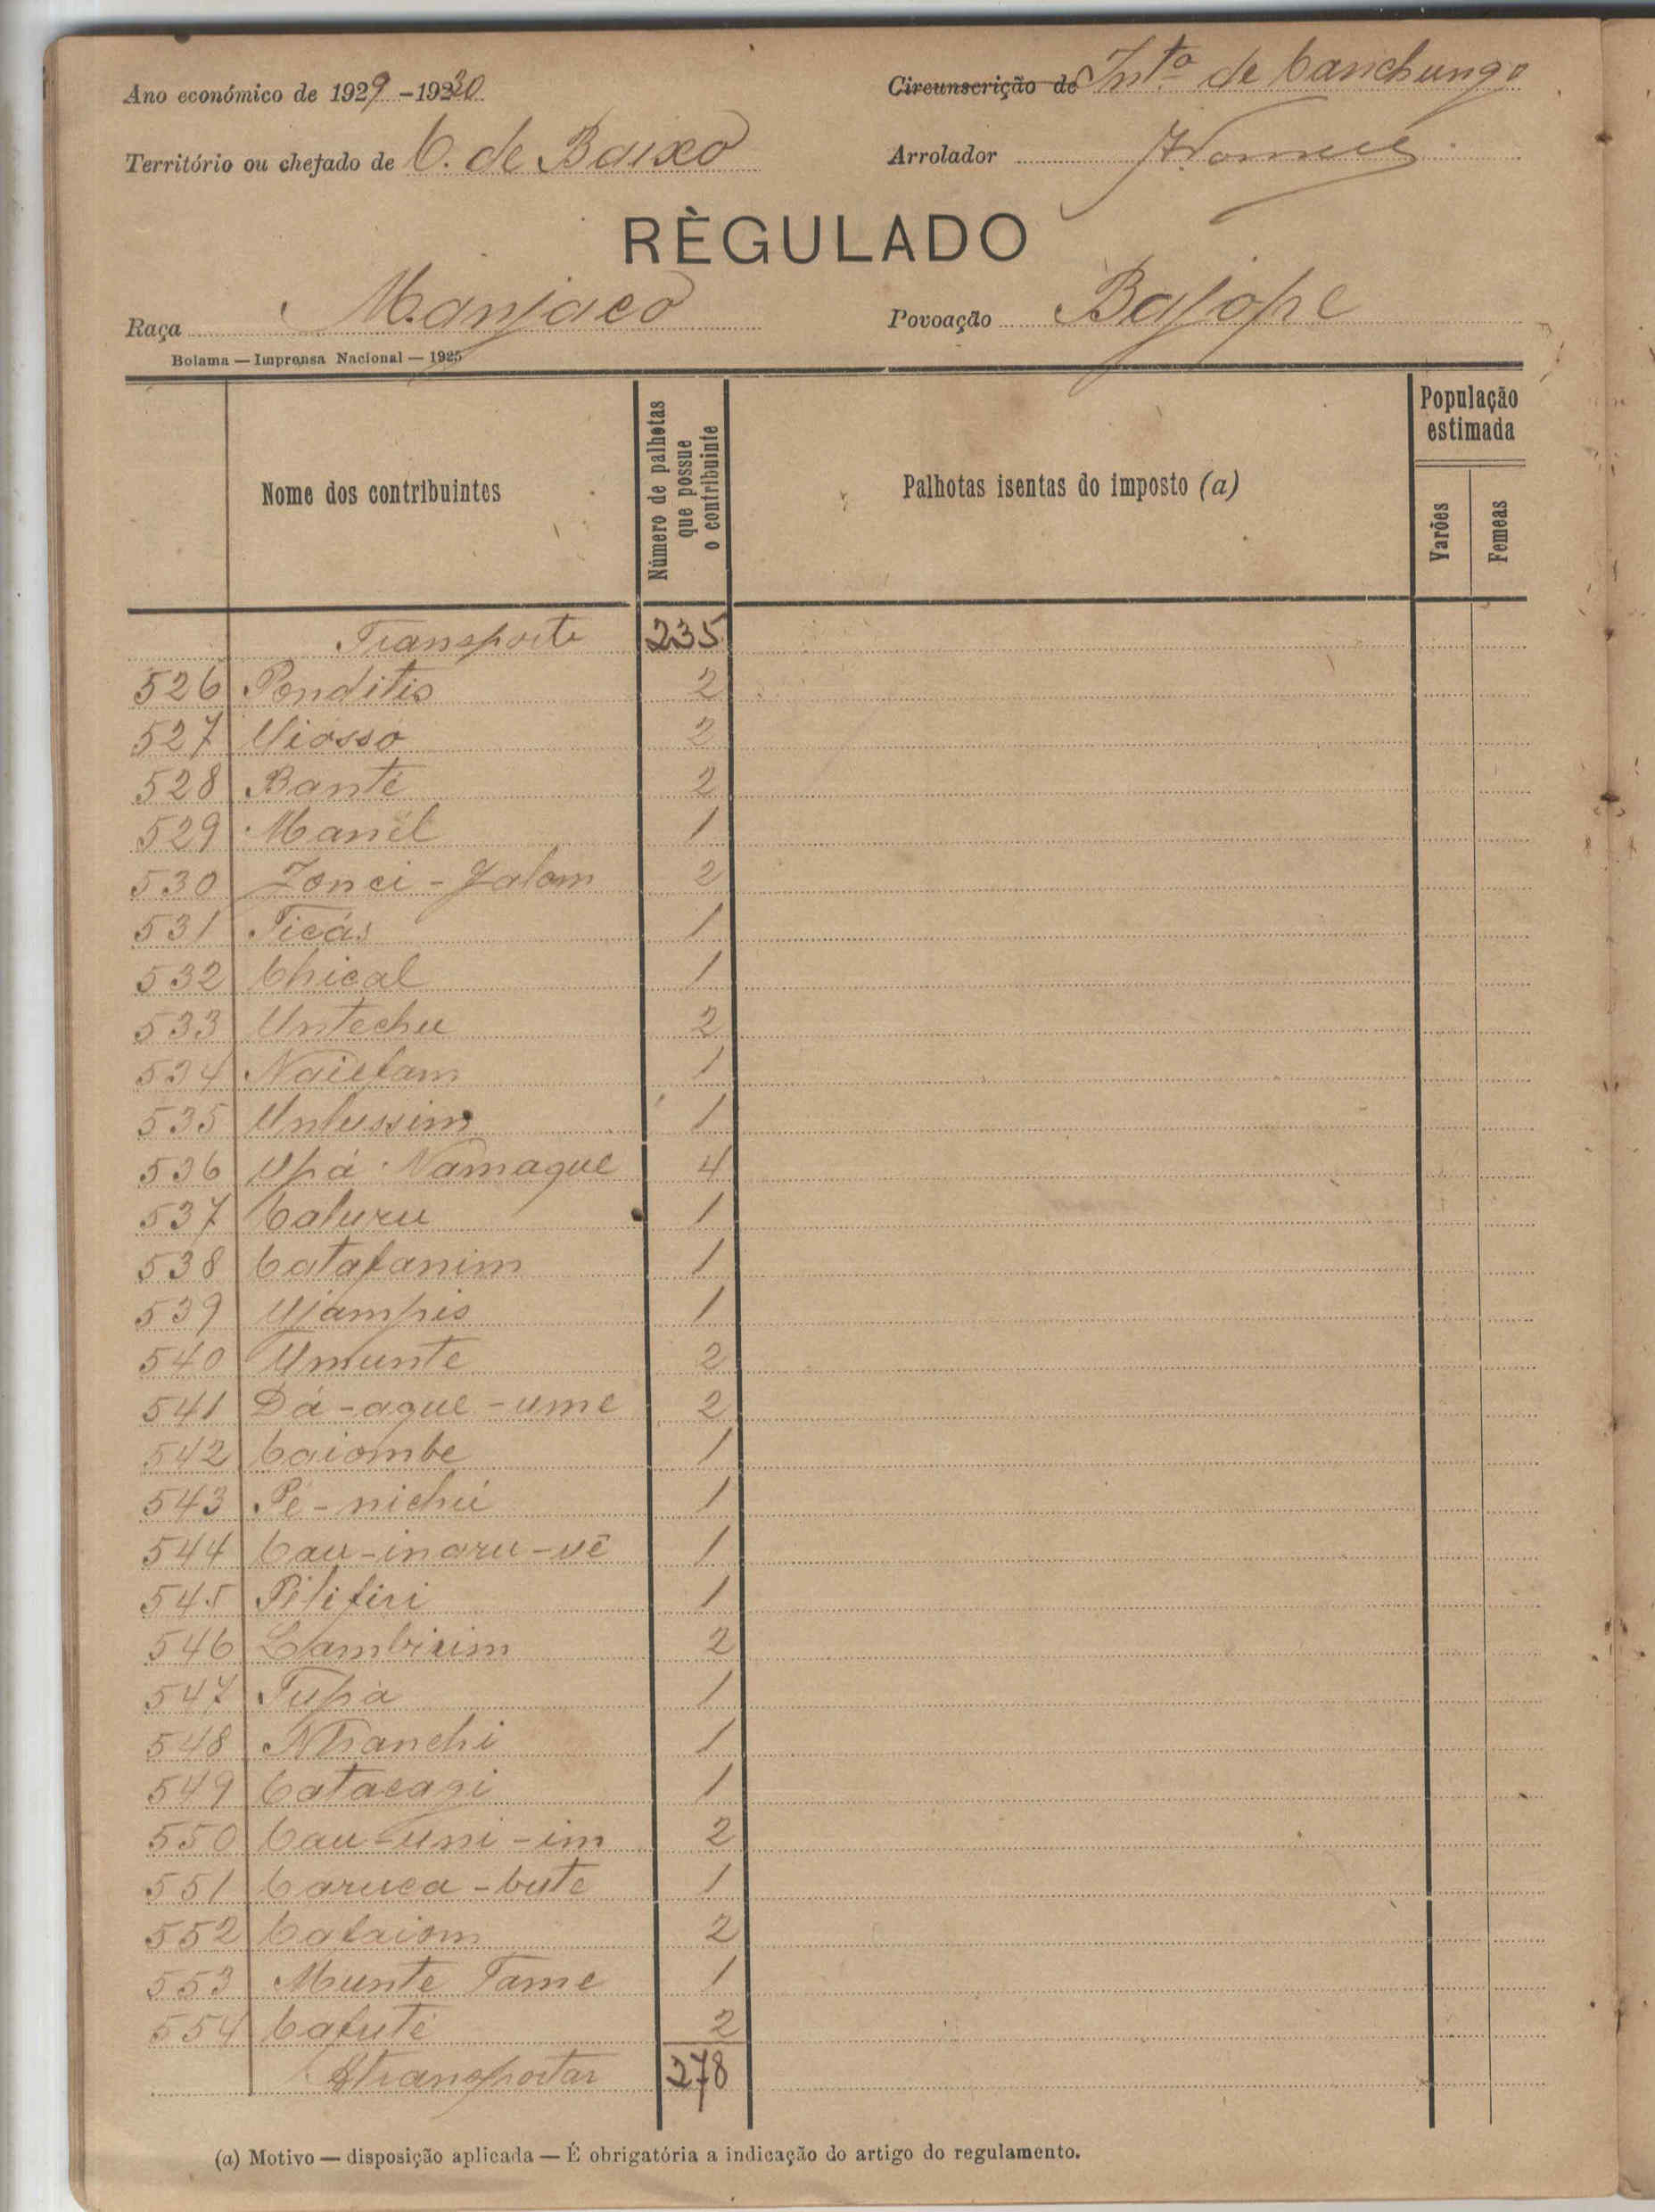 Ano económico de 1929-1930 Circunscrição de Intª de Canchungo
Território ou chefado de C. de Baixo Arrolador
RÈGULADO
Raça Manjaco Povoação Bajope
Bolama — Imprensa Nacional — 1925
Nome dos contribuintes Número de palhotas que possue o contribuinte Palhotas isentas do imposto (a) População estimada Varões Femeas
Transporte 235
526 Penditis 2
527 Uiósso 2
528 Banté 2
529 Manél 1
530 Zonci-Jalam 2
531 Ticás 1
532 Chical 1
533 Untechu 2
534 Naiefam 1
535 Unfussim 1
536 Upá Namaque 4
537 Caluru 1
538 Catafanim 1
539 Ujampis 1
540 Umunte 2
541 Dá-aque-ume 2
542 Caiombe 1
543 Pé-nichú 1
544 Cau-inaru-vê 1
545 Pilifiri 1
546 Cambirim 2
547 Tupá 1
548 Nhanchi 1
549 Catacagi 1
550 Cau-uni-im 2
551 Caruca-bute 1
552 Cafaiom 2
553 Munte Tame 1
554 Cafuté 2
Atransportar 278
(a) Motivo — disposição aplicada — É obrigatória a indicação do artigo do regulamento.